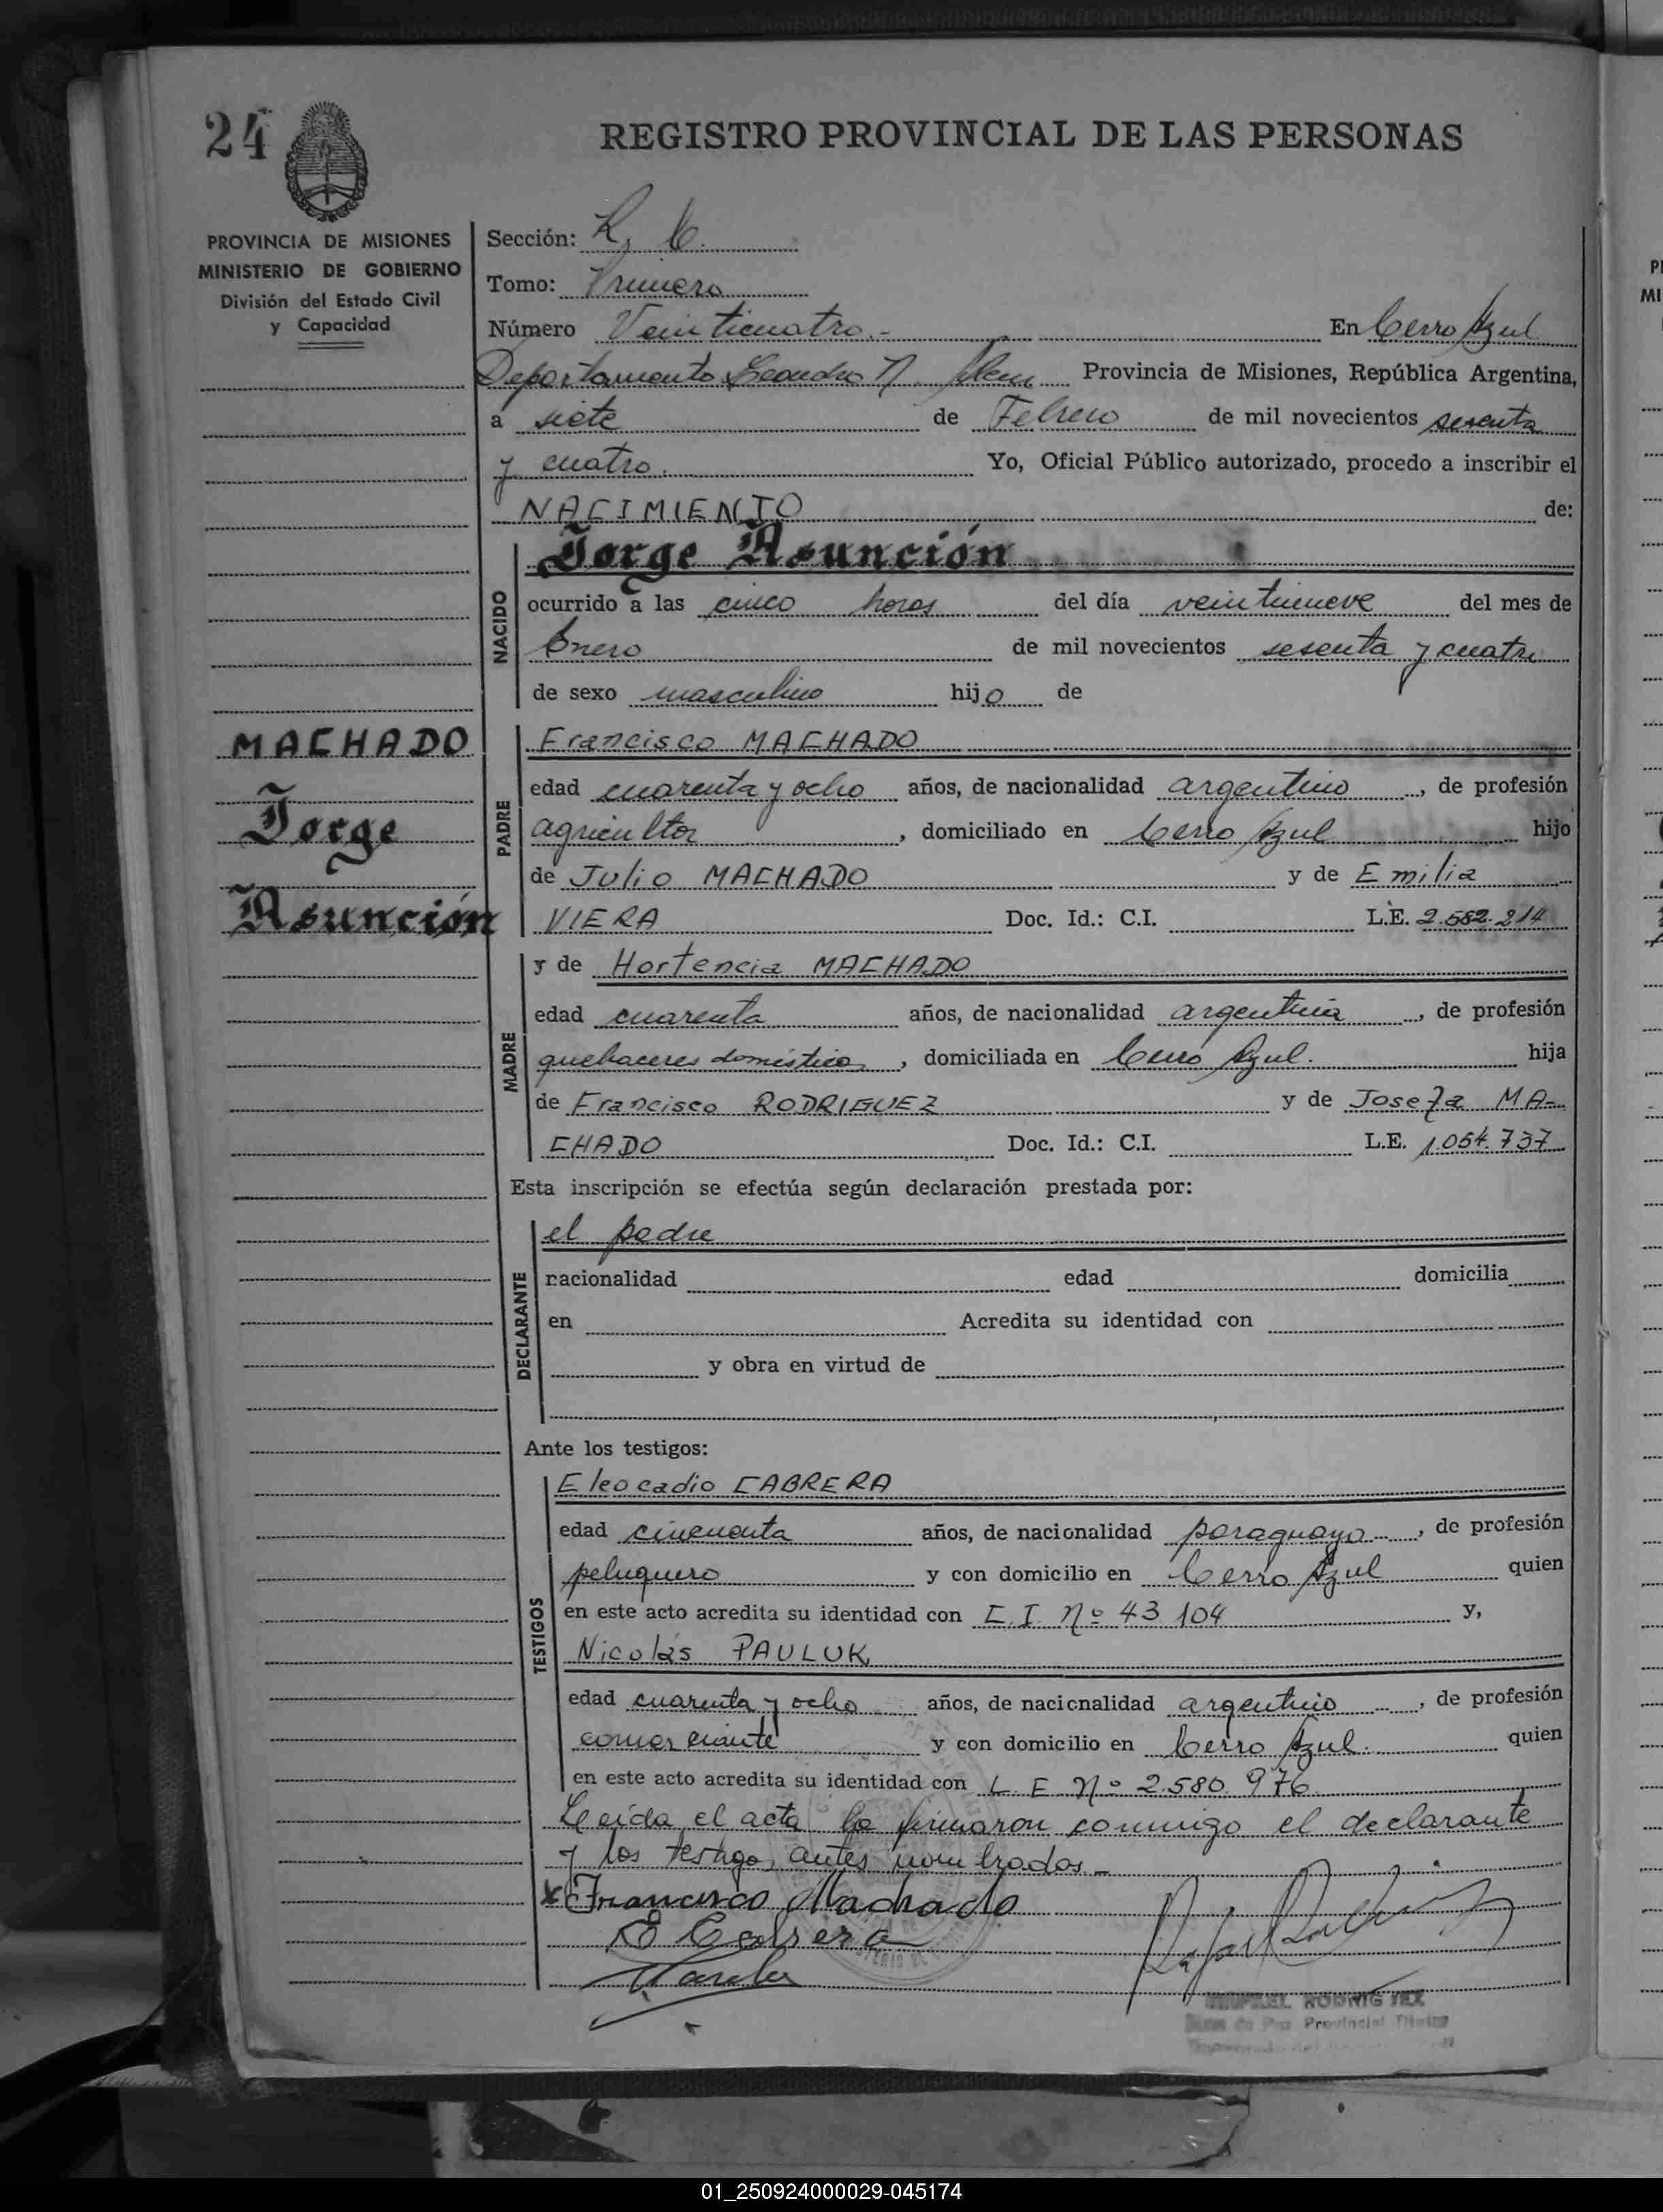 24
REGISTRO PROVINCIAL DE LAS PERSONAS
PROVINCIA DE MISIONES
MINISTERIO DE GOBIERNO
División del Estado Civil
y Capacidad
MACHADO
Jorge
Asunción
Sección:
Tomo: Primero
Número Veinticuatro.- En Cerro Azul
Departamento Leandro N. Alem Provincia de Misiones, República Argentina,
a siete de Febrero de mil novecientos sesenta
y cuatro. Yo, Oficial Público autorizado, procedo a inscribir el
NACIMIENTO de:
NACIDO
Jorge Asunción
ocurrido a las cinco horas del día veintinueve del mes de
Enero de mil novecientos sesenta y cuatro
de sexo masculino hijo de
PADRE
Francisco MACHADO
edad cuarenta y ocho años, de nacionalidad argentino, de profesión
agricultor, domiciliado en Cerro Azul hijo
de Julio MACHADO y de Emilia
VIERA Doc. Id.: C.I. L.E. 2.582.214
MADRE
y de Hortencia MACHADO
edad cuarenta años, de nacionalidad argentina, de profesión
quehaceres domésticos, domiciliada en Cerro Azul. hija
de Francisco RODRIGUEZ y de Josefa MA-
CHADO Doc. Id.: C.I. L.E. 1.054.737
Esta inscripción se efectúa según declaración prestada por:
DECLARANTE
el padre
nacionalidad edad domicilia
en Acredita su identidad con
y obra en virtud de
Ante los testigos:
TESTIGOS
Eleocadio CABRERA
edad cincuenta años, de nacionalidad paraguayo, de profesión
peluquero y con domicilio en Cerro Azul quien
en este acto acredita su identidad con C.I. Nº 43 104 y,
Nicolás PAULUK
edad cuarenta y ocho años, de nacionalidad argentino, de profesión
comerciante y con domicilio en Cerro Azul. quien
en este acto acredita su identidad con L.E. Nº 2.580.976
Leída el acta la firmaron conmigo el declarante
y los testigos antes nombrados-
Francisco Machado
E Cabrera
Juez de Paz Provincial Titular
01_250924000029-045174